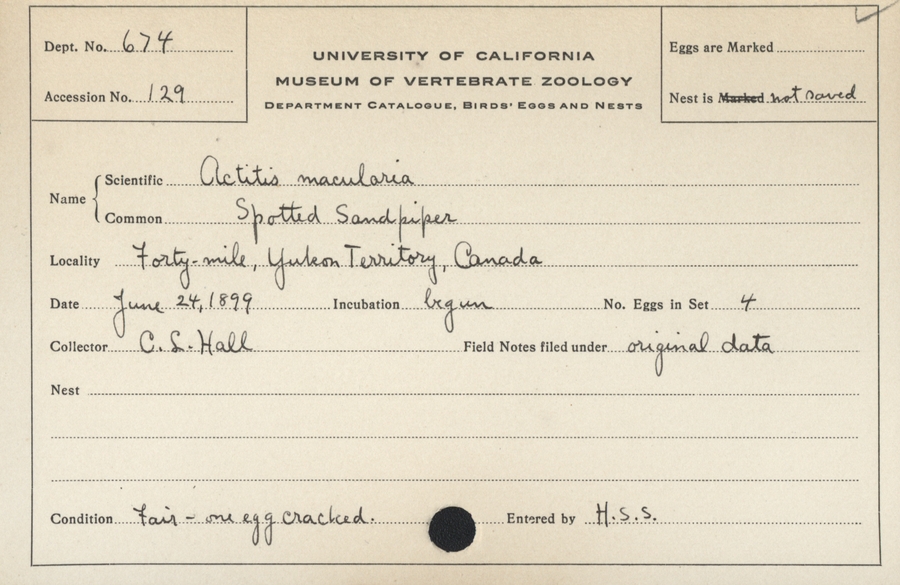 Dept. No. 674
Accession No. 129
UNIVERSITY OF CALIFORNIA
MUSEUM OF VERTEBRATE ZOOLOGY
DEPARTMENT CATALOGUE, BIRDS' EGGS AND NESTS
Eggs are Marked
Nest is Marked not saved
Name
Scientific Actitis macularia
Common Spotted Sandpiper
Locality Forty-mile, Yukon Territory, Canada
Date June 24, 1899 Incubation begun No. Eggs in Set 4
Collector C. L. Hall Field Notes filed under original data
Nest
Condition Fair - one egg cracked. Entered by H.S.S.